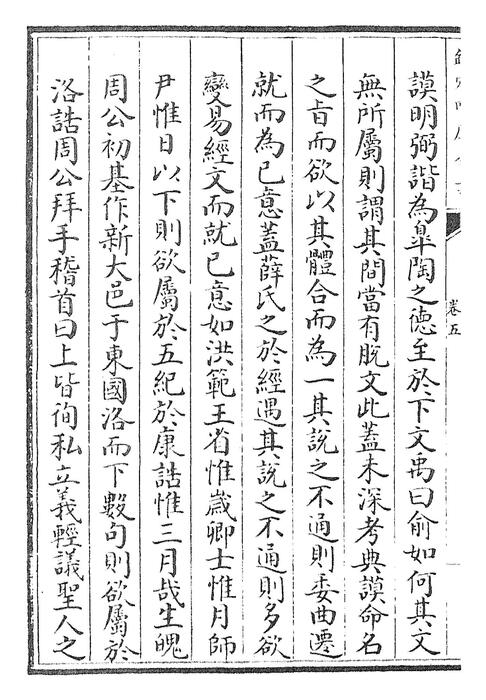 謨明弼諧為臯陶之德至於下文禹曰俞如何其文
無所屬則謂其間當有脫文此蓋未深考典謨命名
之旨而欲以其體合而為一其說之不通則委曲遷
就而為已意蓋薛氏之於經遇其說之不通則多欲
變易經文而就已意如洪範王省惟歲卿士惟月師
尹惟日以下則欲屬於五紀於康誥惟三月哉生魄
周公初基作新大邑于東國洛而下數句則欲屬於
洛誥周公拜手稽首曰上皆徇私立義輕議聖人之
卷五